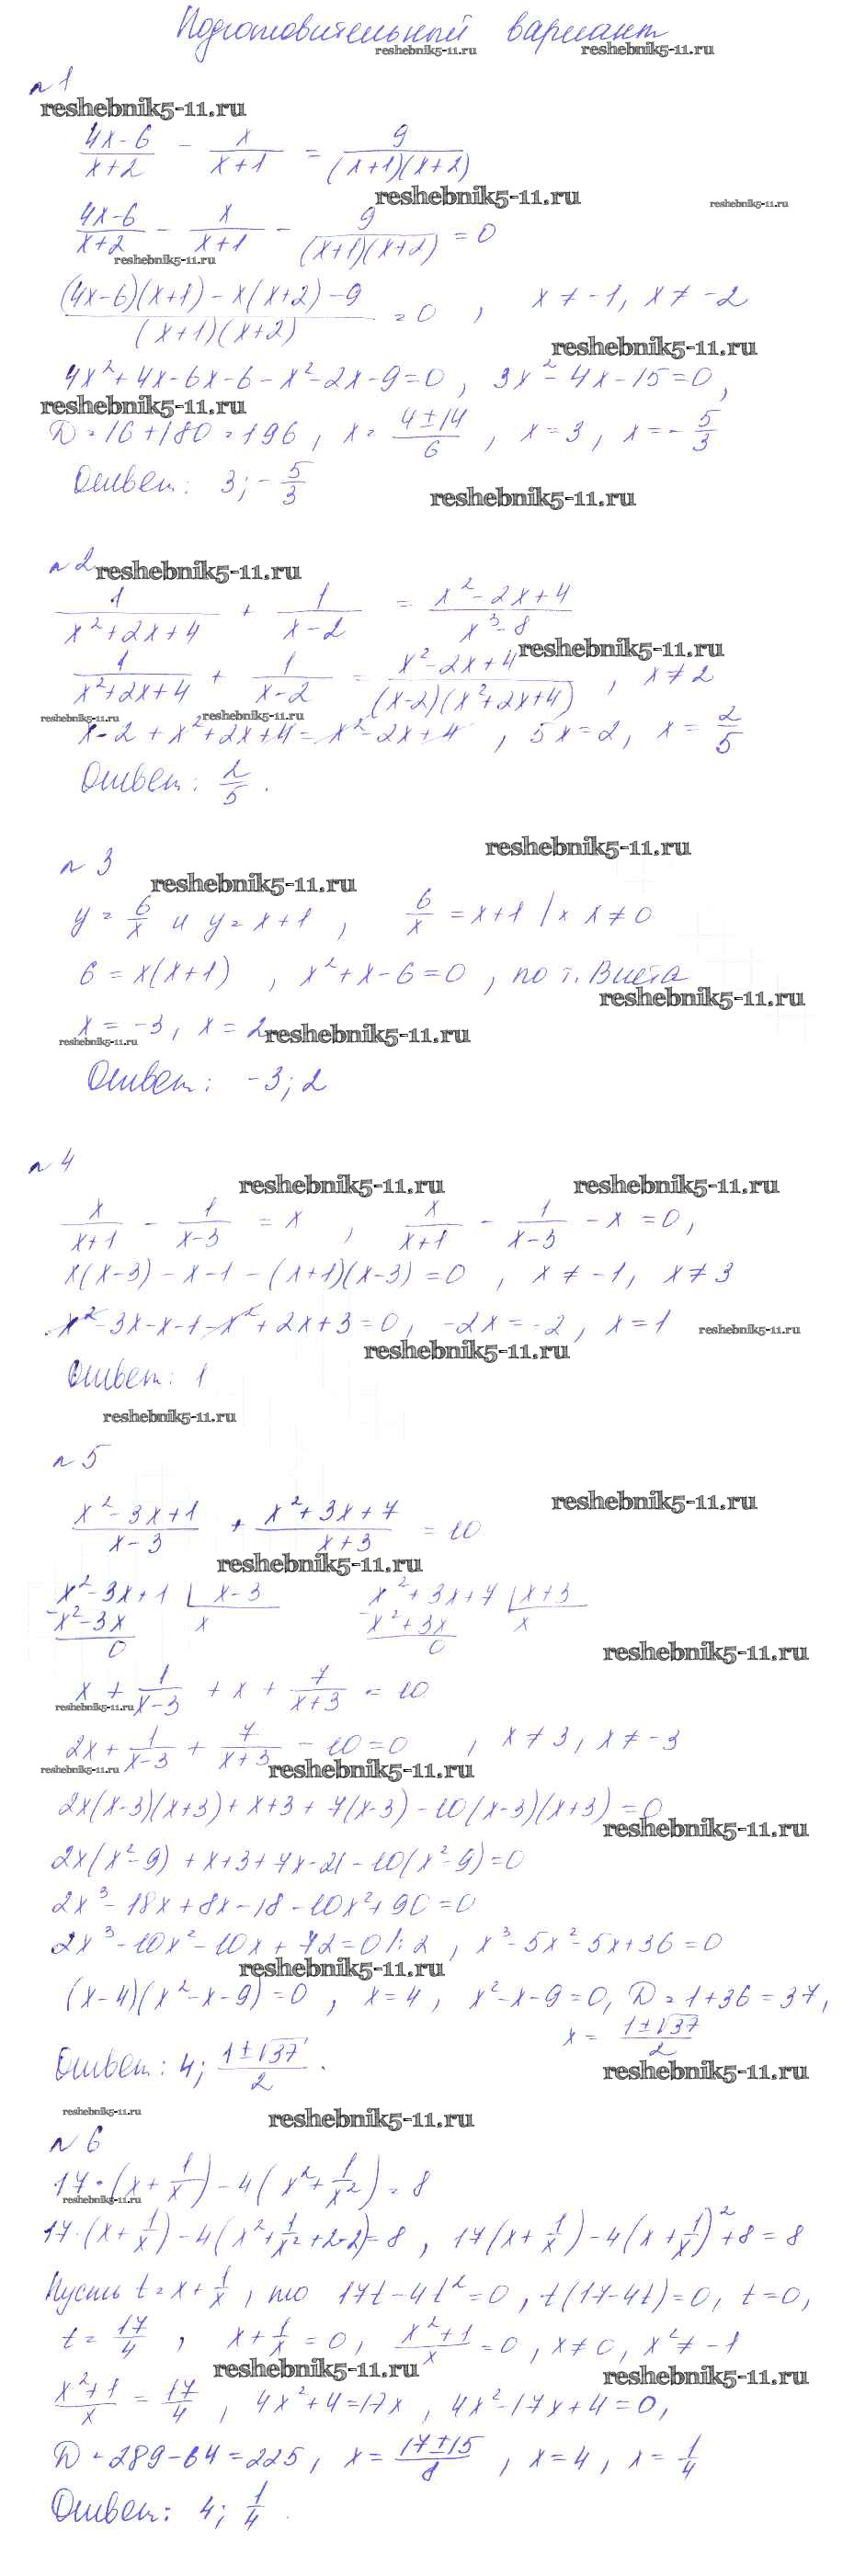 Подготовительный вариант
reshebnik5-11.ru reshebnik5-11.ru
n 1
reshebnik5-11.ru
(4x-6)/(x+2) - x/(x+1) = 9/((x+1)(x+2))
reshebnik5-11.ru reshebnik5-11.ru
(4x-6)/(x+2) - x/(x+1) - 9/((x+1)(x+2)) = 0
reshebnik5-11.ru
((4x-6)(x+1)-x(x+2)-9)/((x+1)(x+2)) = 0 , x ≠ -1, x ≠ -2
reshebnik5-11.ru
4x²+4x-6x-6-x²-2x-9=0, 3x²-4x-15=0,
reshebnik5-11.ru
D=16+180=196, x= (4±14)/6 , x=3, x=-5/3
Ответ: 3; -5/3
reshebnik5-11.ru
n 2
reshebnik5-11.ru
1/(x²+2x+4) + 1/(x-2) = (x²-2x+4)/(x³-8)
reshebnik5-11.ru
1/(x²+2x+4) + 1/(x-2) = (x²-2x+4)/((x-2)(x²+2x+4)) , x≠2
reshebnik5-11.ru reshebnik5-11.ru
x-2+x²+2x+4=x²-2x+4 , 5x=2, x=2/5
Ответ: 2/5.
reshebnik5-11.ru
n 3
reshebnik5-11.ru
y=6/x и y=x+1 , 6/x=x+1 |·x x≠0
6=x(x+1) , x²+x-6=0 , по т. Виета
reshebnik5-11.ru
x=-3, x=2
reshebnik5-11.ru reshebnik5-11.ru
Ответ: -3; 2
n 4
reshebnik5-11.ru reshebnik5-11.ru
x/(x+1) - 1/(x-3) = x , x/(x+1) - 1/(x-3) - x = 0,
x(x-3)-x-1-(x+1)(x-3)=0 , x≠-1, x≠3
x²-3x-x-1-x²+2x+3=0, -2x=-2, x=1
reshebnik5-11.ru
reshebnik5-11.ru
Ответ: 1
reshebnik5-11.ru
n 5
reshebnik5-11.ru
(x²-3x+1)/(x-3) + (x²+3x+7)/(x+3) = 10
reshebnik5-11.ru
x²-3x+1 | x-3 x²+3x+7 | x+3
-x²-3x x -x²+3x x
0 0
reshebnik5-11.ru
x + 1/(x-3) + x + 7/(x+3) = 10
reshebnik5-11.ru
2x + 1/(x-3) + 7/(x+3) - 10=0 , x≠3, x≠-3
reshebnik5-11.ru reshebnik5-11.ru
2x(x-3)(x+3)+x+3+7(x-3)-10(x-3)(x+3)=0
reshebnik5-11.ru
2x(x²-9)+x+3+7x-21-10(x²-9)=0
2x³-18x+8x-18-10x²+90=0
2x³-10x²-10x+72=0 |:2 , x³-5x²-5x+36=0
reshebnik5-11.ru
(x-4)(x²-x-9)=0 , x=4, x²-x-9=0, D=1+36=37,
x= (1±√37)/2
Ответ: 4; (1±√37)/2.
reshebnik5-11.ru
reshebnik5-11.ru reshebnik5-11.ru
n 6
17·(x+1/x)-4(x²+1/x²)=8
reshebnik5-11.ru
17·(x+1/x)-4(x²+1/x²+2-2)=8 , 17(x+1/x)-4(x+1/x)²+8=8
Пусть t=x+1/x , то 17t-4t²=0, t(17-4t)=0, t=0,
t=17/4 , x+1/x=0, (x²+1)/x=0, x≠0, x²≠-1
reshebnik5-11.ru reshebnik5-11.ru
(x²+1)/x=17/4 , 4x²+4=17x , 4x²-17x+4=0,
D=289-64=225, x=(17±15)/8 , x=4, x=1/4
Ответ: 4; 1/4.